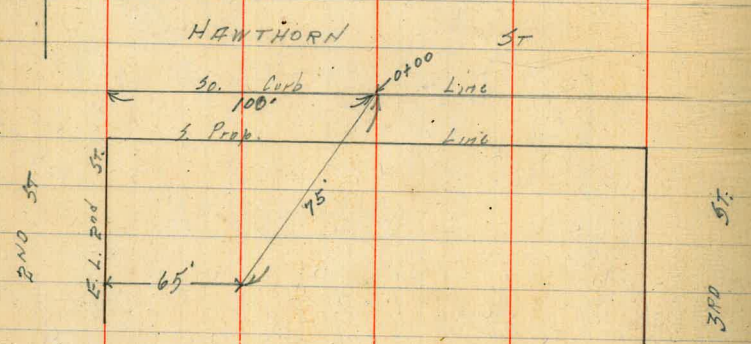 HAWTHORN ST
0+00
So. Curb Line
100'
S. Prop. Line
75'
2ND ST
E. L. 2nd St.
65'
3RD ST.